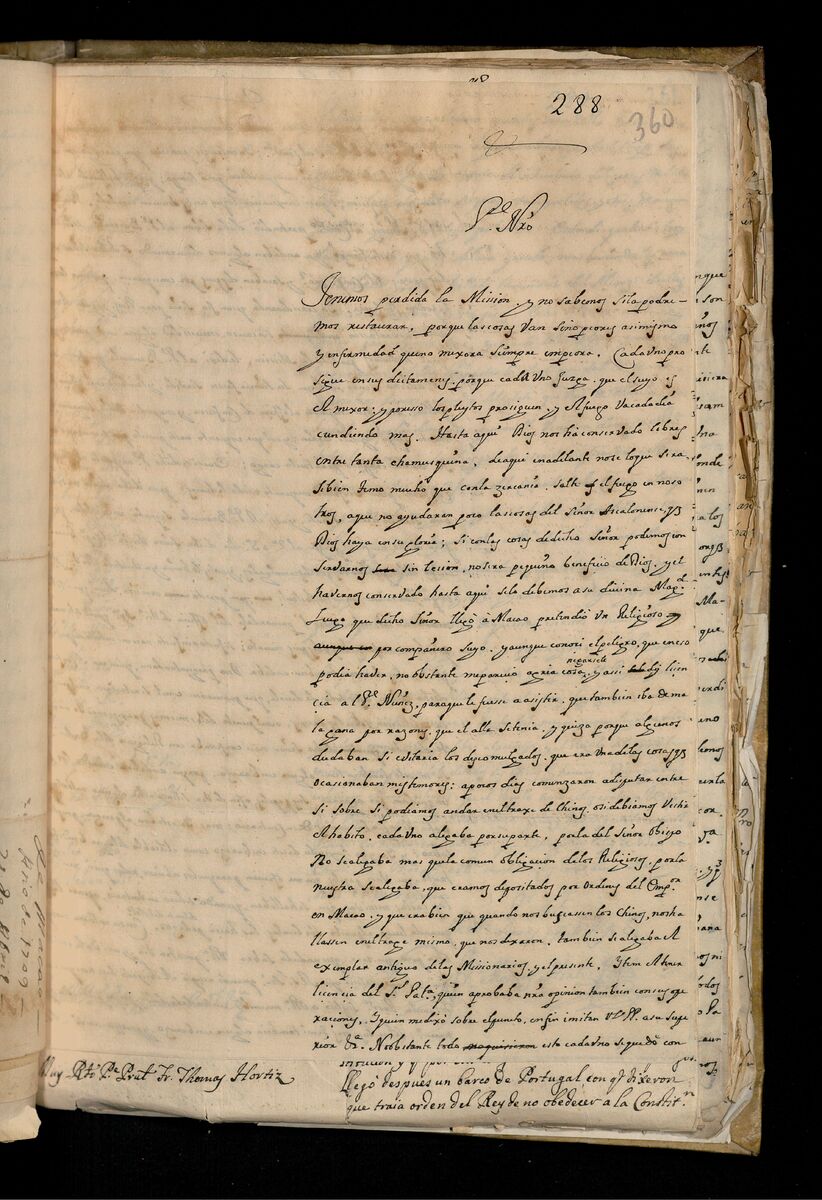 288
360
P.e Nrô
Tenemos perdida la Mission, y no sabemos si la podre-
mos restaurar, porque las cosas van sino peores asimismo
y enfermedad que no mexora siempre empeora. Cada vno pro
sigue en sus dictamenes porque cada Vno Juzga que el suyo es
el mexor; y por esso los pleytos prosiguen, y el fuego va cada dia
cundiendo mas. Hasta aqui Dios nos há conservado libres
entre tanta chamusquina, de aqui en adelante no se lo que sera
si bien temo mucho que con la zercania salte el fuego en noso
tros, a que no ayudaran poco las cosas del Señor Ascalonense, q
Dios haya en su gloria; si con las cosas de dicho Señor podemos con
servarnos sin lession, no sera pequeño beneficio de Dios, y el
havernos conservado hasta aqui se le debemos a su divina Mag.d
Luego que dicho Señor llegó à Macao pretendió vn Religioso
por compañero suyo, y aunque conoci el peligro, que en eso
podia haver, no obstante me parecio agria cosa negarsele y assi di licen
cia a el P.e Nuñez, para que le fuesse a asistir, que tambien iba de ma
la gana por razones que el alla se tenia, y quiza porque algunos
dudaban si evitaria los descomulgados, que era vna de las cosas q
ocasionaban mis temores; a pocos dias comenzaron a disputar entre
si sobre si podiamos andar en el traxe de Chinos, o si debiamos Vestir
el habito, cada vno alegaba por su parte, por la del Señor Obispo
no se alegaba mas que la comun obligacion de los Religiosos, por la
nuestra se alegaba, que eramos depositados por Ordenes del Emp.or
en Macao, y que era bien que quando nos buscassen los Chinos, nos ha
llassen en el trage mismo, que nos dexaron. tambien se alegaba el
exemplar antiguo de los Missionarios, y el presente. Item el tener
licencia del S.r Pat.a, quien aprobaba nrâ opinion tambien con sus ope
raciones, Y quien me dixó sobre el punto, en fin imitan V.s PP. a su supe
rior &.a No obstante todo esto cada vno se quedó con
Muy R.do P.e Prou.l Fr. Thomas Hortiz
llegó despues un barco de Portugal, con q dixeron
que traia orden del Rey de no obedecer a la Constit.n
De Macao
Año de 1709